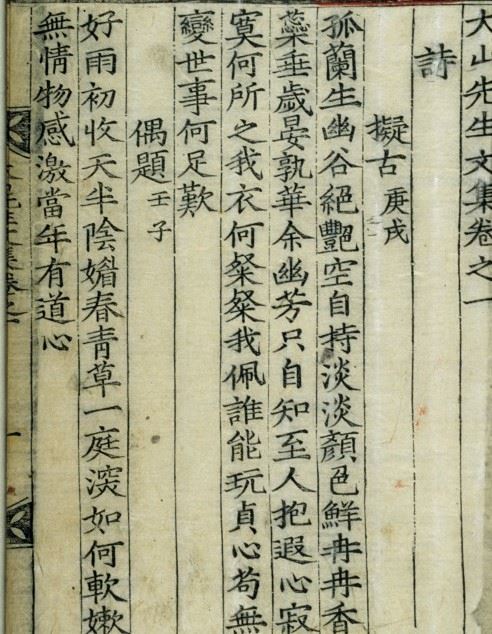 大山先生文集卷之一
詩
擬古 庚戌
孤蘭生幽谷絕豔空自持淡淡顏色鮮冉冉香
蘂垂歲晏孰華余幽芳只自知至人抱遐心寂
寞何所之我衣何粲粲我佩誰能玩貞心苟無
變世事何足歎
偶題 壬子
好雨初收天半陰媚春青草一庭深如何軟嫩
無情物感激當年有道心